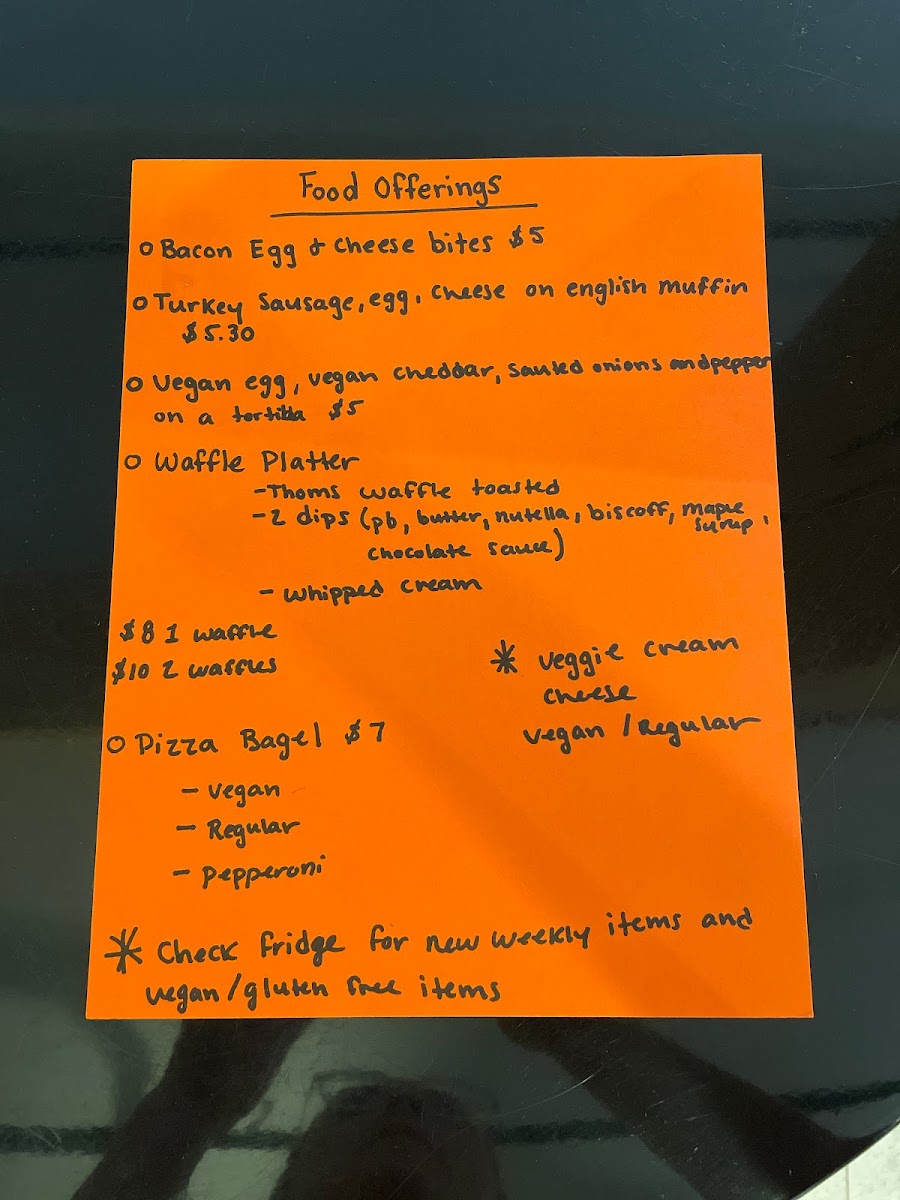 Food Offerings
o Bacon Egg & cheese bites $5
o Turkey sausage, egg, cheese on english muffin
$5.30
o Vegan egg, vegan cheddar, sauted onions and pepper
on a tortilla $5
o Waffle Platter
- Thoms waffle toasted
- 2 dips (pb, butter, nutella, biscoff, maple syrup,
chocolate sauce)
- whipped cream
$8 1 waffle
$10 2 waffles
* veggie cream
cheese
vegan / Regular
o Pizza Bagel $7
- vegan
- Regular
- pepperoni
* Check fridge for new weekly items and
vegan/gluten free items